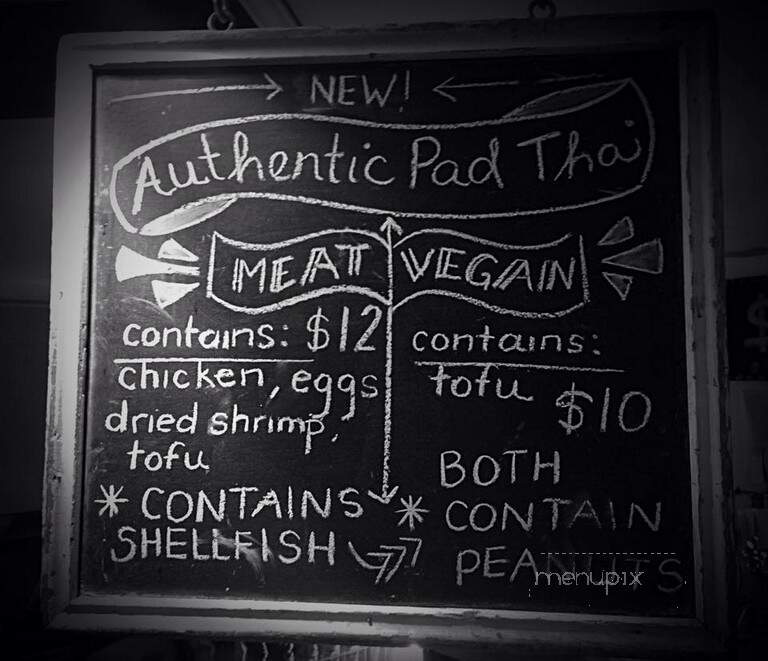 NEW!
Authentic Pad Thai
MEAT
contains: $12
chicken, eggs
dried shrimp,
tofu
* CONTAINS
SHELLFISH
VEGAN
contains:
tofu
$10
BOTH
* CONTAIN
PEANUTS
menupix